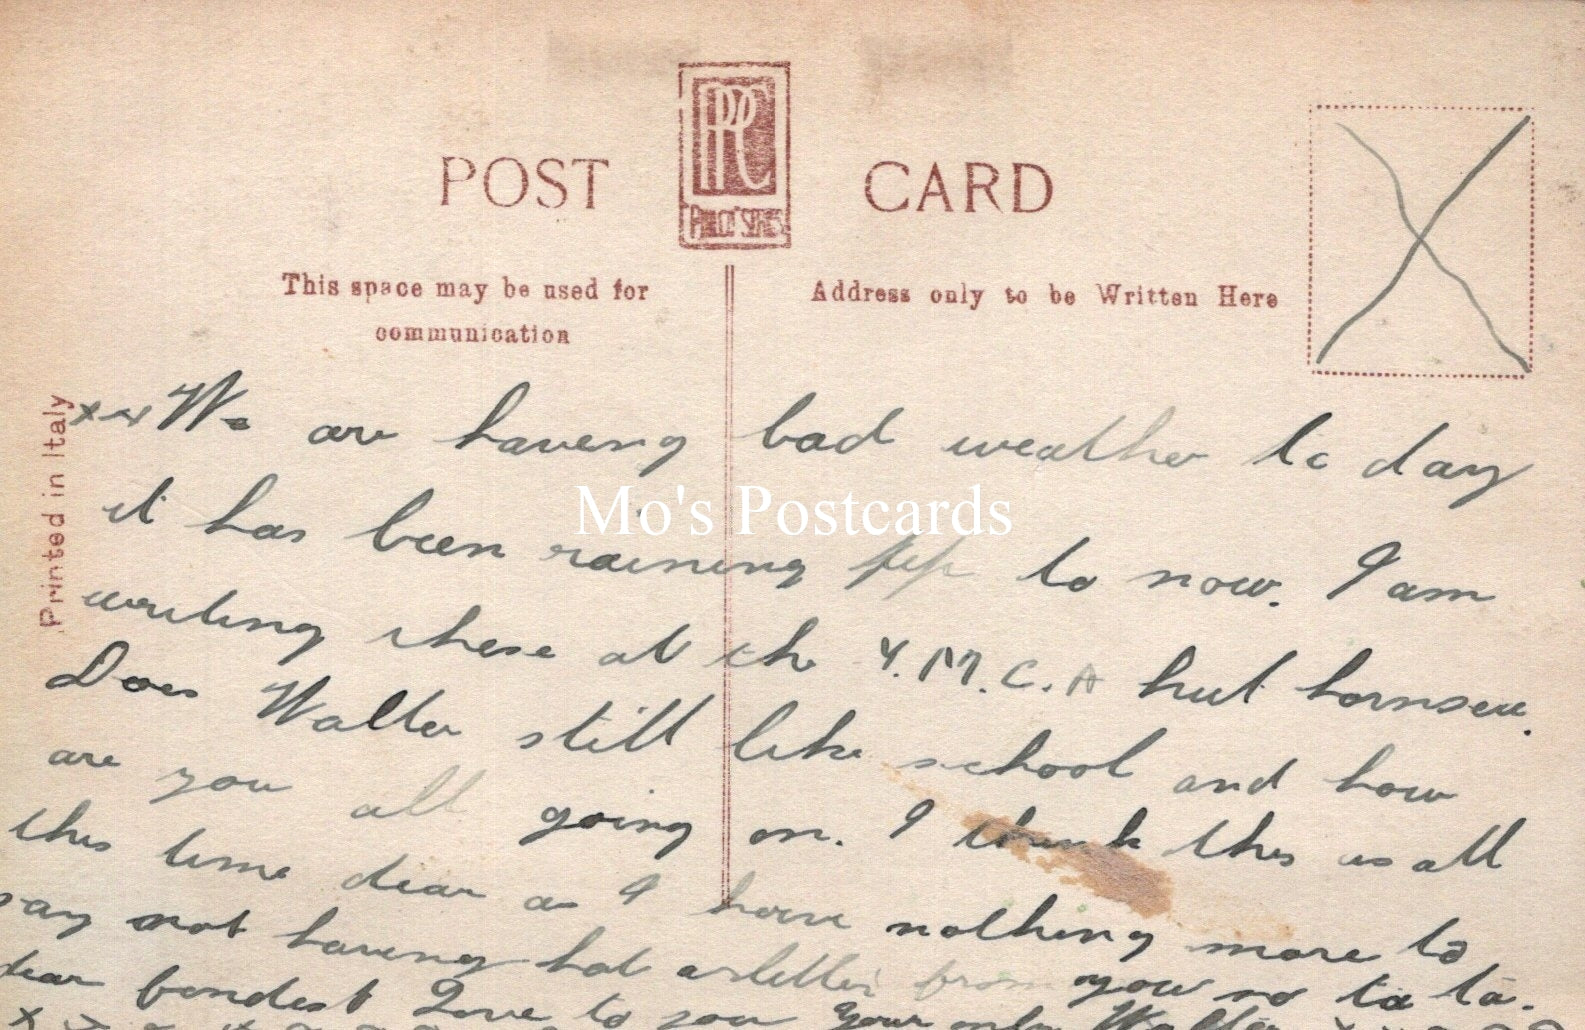 POST CARD
PPC
"Philco" Series
This space may be used for
communication
Address only to be Written Here
Printed in Italy
xxx We are haveing bad weather to day
it has been raining up to now. I am
writing these at the Y.M.C.A hut hornsea.
Does Walter still like school and how
are you all going on. I think this is all
this time dear as I have nothing more to
say not having hat a letter from you so ta ta.
dear fondest Love to you Your only Walter
Mo's Postcards